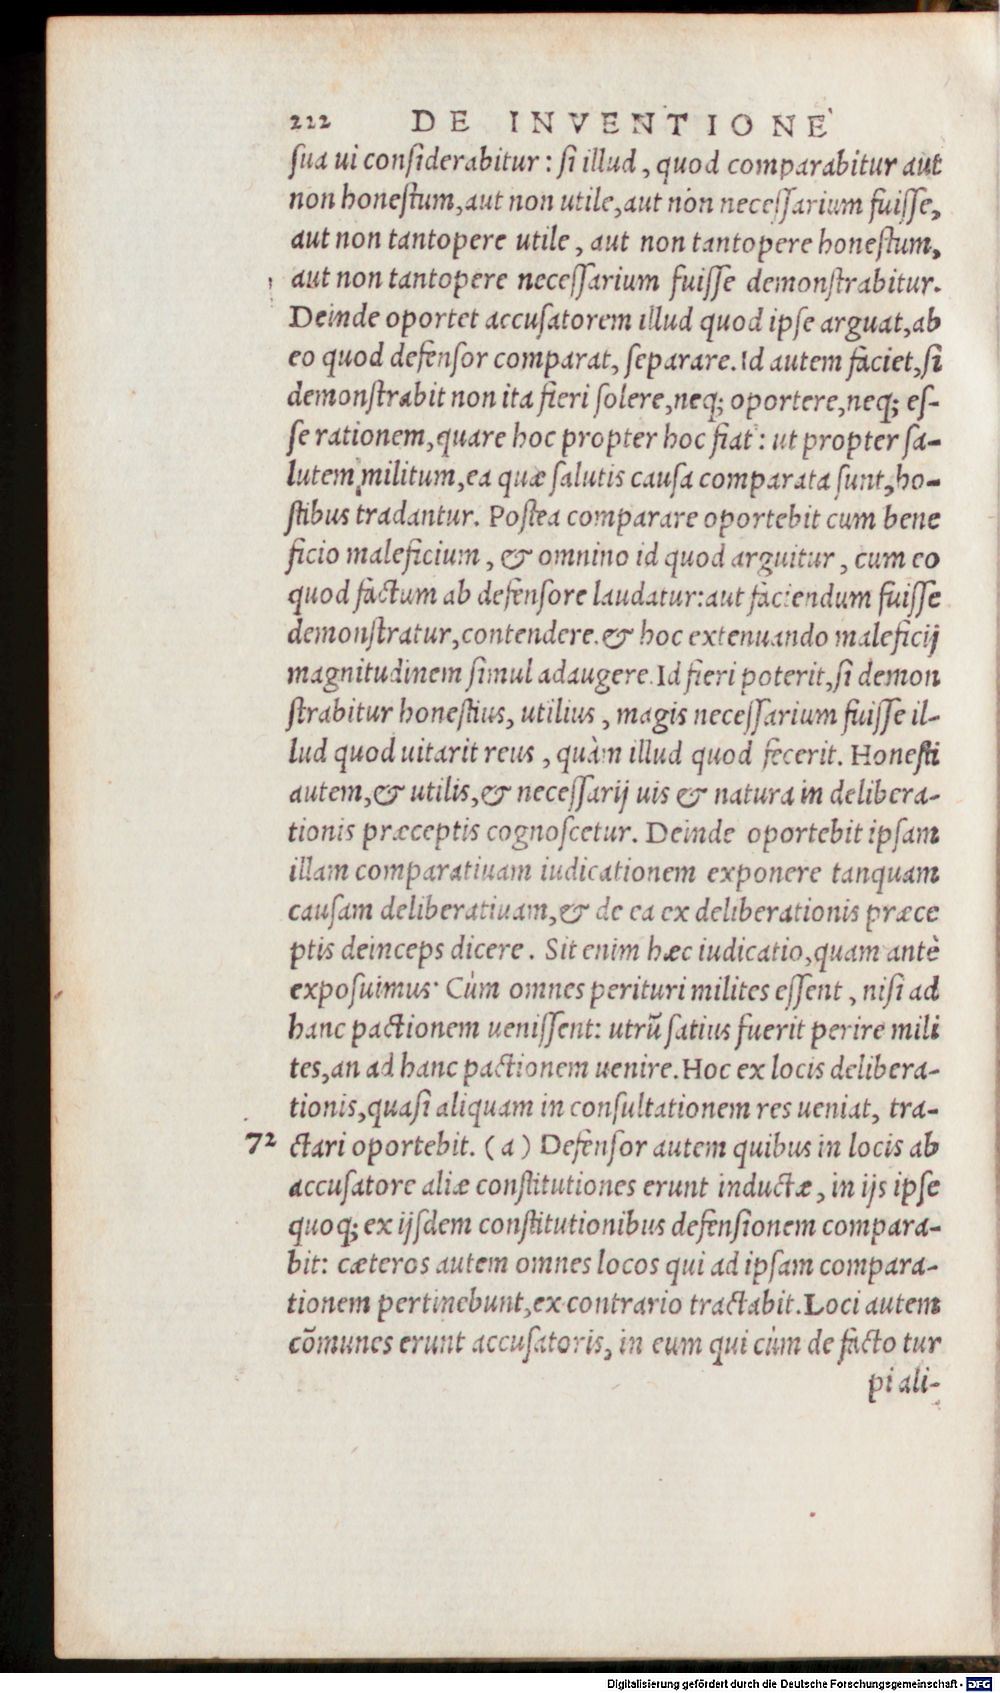 222 DE INVENTIONE
ſua ui conſiderabitur : ſi illud , quod comparabitur aut
non honeſtum, aut non utile, aut non neceſſarium fuiſſe,
aut non tantopere utile , aut non tantopere honeſtum,
aut non tantopere neceſſarium fuiſſe demonſtrabitur.
Deinde oportet accuſatorem illud quod ipſe arguat, ab
eo quod defenſor comparat, ſeparare. Id autem faciet, ſi
demonſtrabit non ita fieri ſolere, neq; oportere, neq; eſ-
ſe rationem, quare hoc propter hoc fiat : ut propter ſa-
lutem militum, ea quæ ſalutis cauſa comparata ſunt, ho-
ſtibus tradantur. Poſtea comparare oportebit cum bene
ficio maleficium , & omnino id quod arguitur , cum eo
quod factum ab defenſore laudatur: aut faciendum fuiſſe
demonſtratur, contendere. & hoc extenuando maleficij
magnitudinem ſimul adaugere. Id fieri poterit, ſi demon
ſtrabitur honeſtius, utilius , magis neceſſarium fuiſſe il-
lud quod uitarit reus , quàm illud quod fecerit. Honeſti
autem, & utilis, & neceſſarij uis & natura in delibera-
tionis præceptis cognoſcetur. Deinde oportebit ipſam
illam comparatiuam iudicationem exponere tanquam
cauſam deliberatiuam, & de ea ex deliberationis præce
ptis deinceps dicere . Sit enim hæc iudicatio, quam antè
expoſuimus· Cùm omnes perituri milites eſſent , niſi ad
hanc pactionem ueniſſent: utrũ ſatius fuerit perire mili
tes, an ad hanc pactionem uenire. Hoc ex locis delibera-
tionis, quaſi aliquam in conſultationem res ueniat, tra-
72 ctari oportebit. ( a ) Defenſor autem quibus in locis ab
accuſatore aliæ conſtitutiones erunt inductæ , in ijs ipſe
quoq; ex ijſdem conſtitutionibus defenſionem compara-
bit: cæteros autem omnes locos qui ad ipſam compara-
tionem pertinebunt, ex contrario tractabit. Loci autem
cõmunes erunt accuſatoris, in eum qui cùm de facto tur
pi ali-
Digitalisierung gefördert durch die Deutsche Forschungsgemeinschaft - DFG